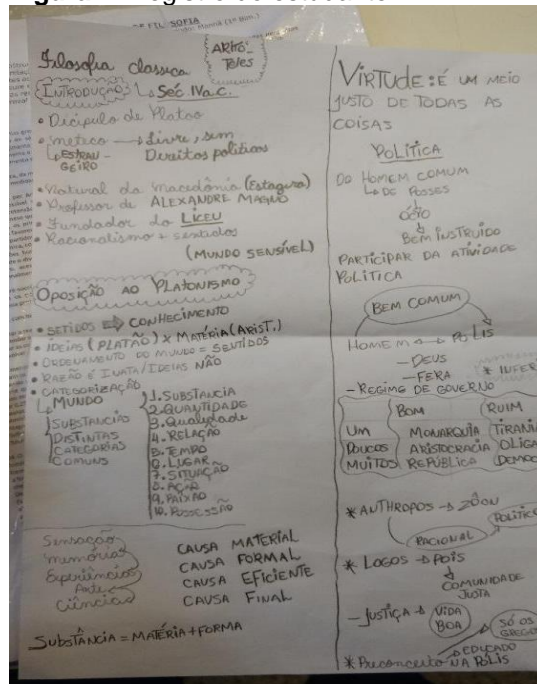 DE FILOSOFIA
Filosofia classica
ARISTÓ-
TELES
INTRODUÇÃO Séc IV a.C.
• Dicípulo de Platão
• meteco → Livre, sem
ESTRAN-
GEIRO
Direitos politicos
• Natural da macedônia (Estagira)
• Professor de ALEXANDRE MAGNO
• Fundador do LICEU
• Racionalismo + sentidos
(MUNDO SENSÍVEL)
OPOSIÇÃO AO PLATONISMO
• SETIDOS ⇒ CONHECIMENTO
• IDEIAS (PLATÃO) X MATÉRIA (ARIST.)
• ORDENAMENTO DO MUNDO = SENTIDOS
• RAZÃO É INATA/IDEIAS NÃO
• CATEGORIZAÇÃO
MUNDO
SUBSTANCIAS
DISTINTAS
CATEGORIAS
COMUNS
1. SUBSTANCIA
2. QUANTIDADE
3. QUALIDADE
4. RELAÇÃO
5. TEMPO
6. LUGAR
7. SITUAÇÃO
8. AÇÃO
9. PAIXÃO
10. POSSESSÃO
Sensação
memória
Experiências
Arte
Ciências
CAUSA MATERIAL
CAUSA FORMAL
CAUSA EFICIENTE
CAUSA FINAL
SUBSTÂNCIA = MATÉRIA + FORMA
VIRTUDE: É UM MEIO
JUSTO DE TODAS AS
COISAS
POLÍTICA
DO HOMEM COMUM
DE POSSES
ÓCIO
BEM INSTRUIDO
PARTICIPAR DA ATIVIDADE
POLITICA
BEM COMUM
HOMEM ↔ POLIS
— DEUS
— FERA
* INFERI
— REGIME DE GOVERNO
BOM RUIM
UM MONARQUIA TIRANIA
POUCOS ARISTOCRACIA OLIGA
MUITOS REPÚBLICA DEMOC
* ANTHROPOS → ZÔON
POLITICO
RACIONAL
* LOGOS → POIS
COMUNIDADE
JUSTA
— JUSTIÇA → VIDA
BOA
SÓ OS
GREGOS
EDUCADO
* Preconceito NA PÓLIS